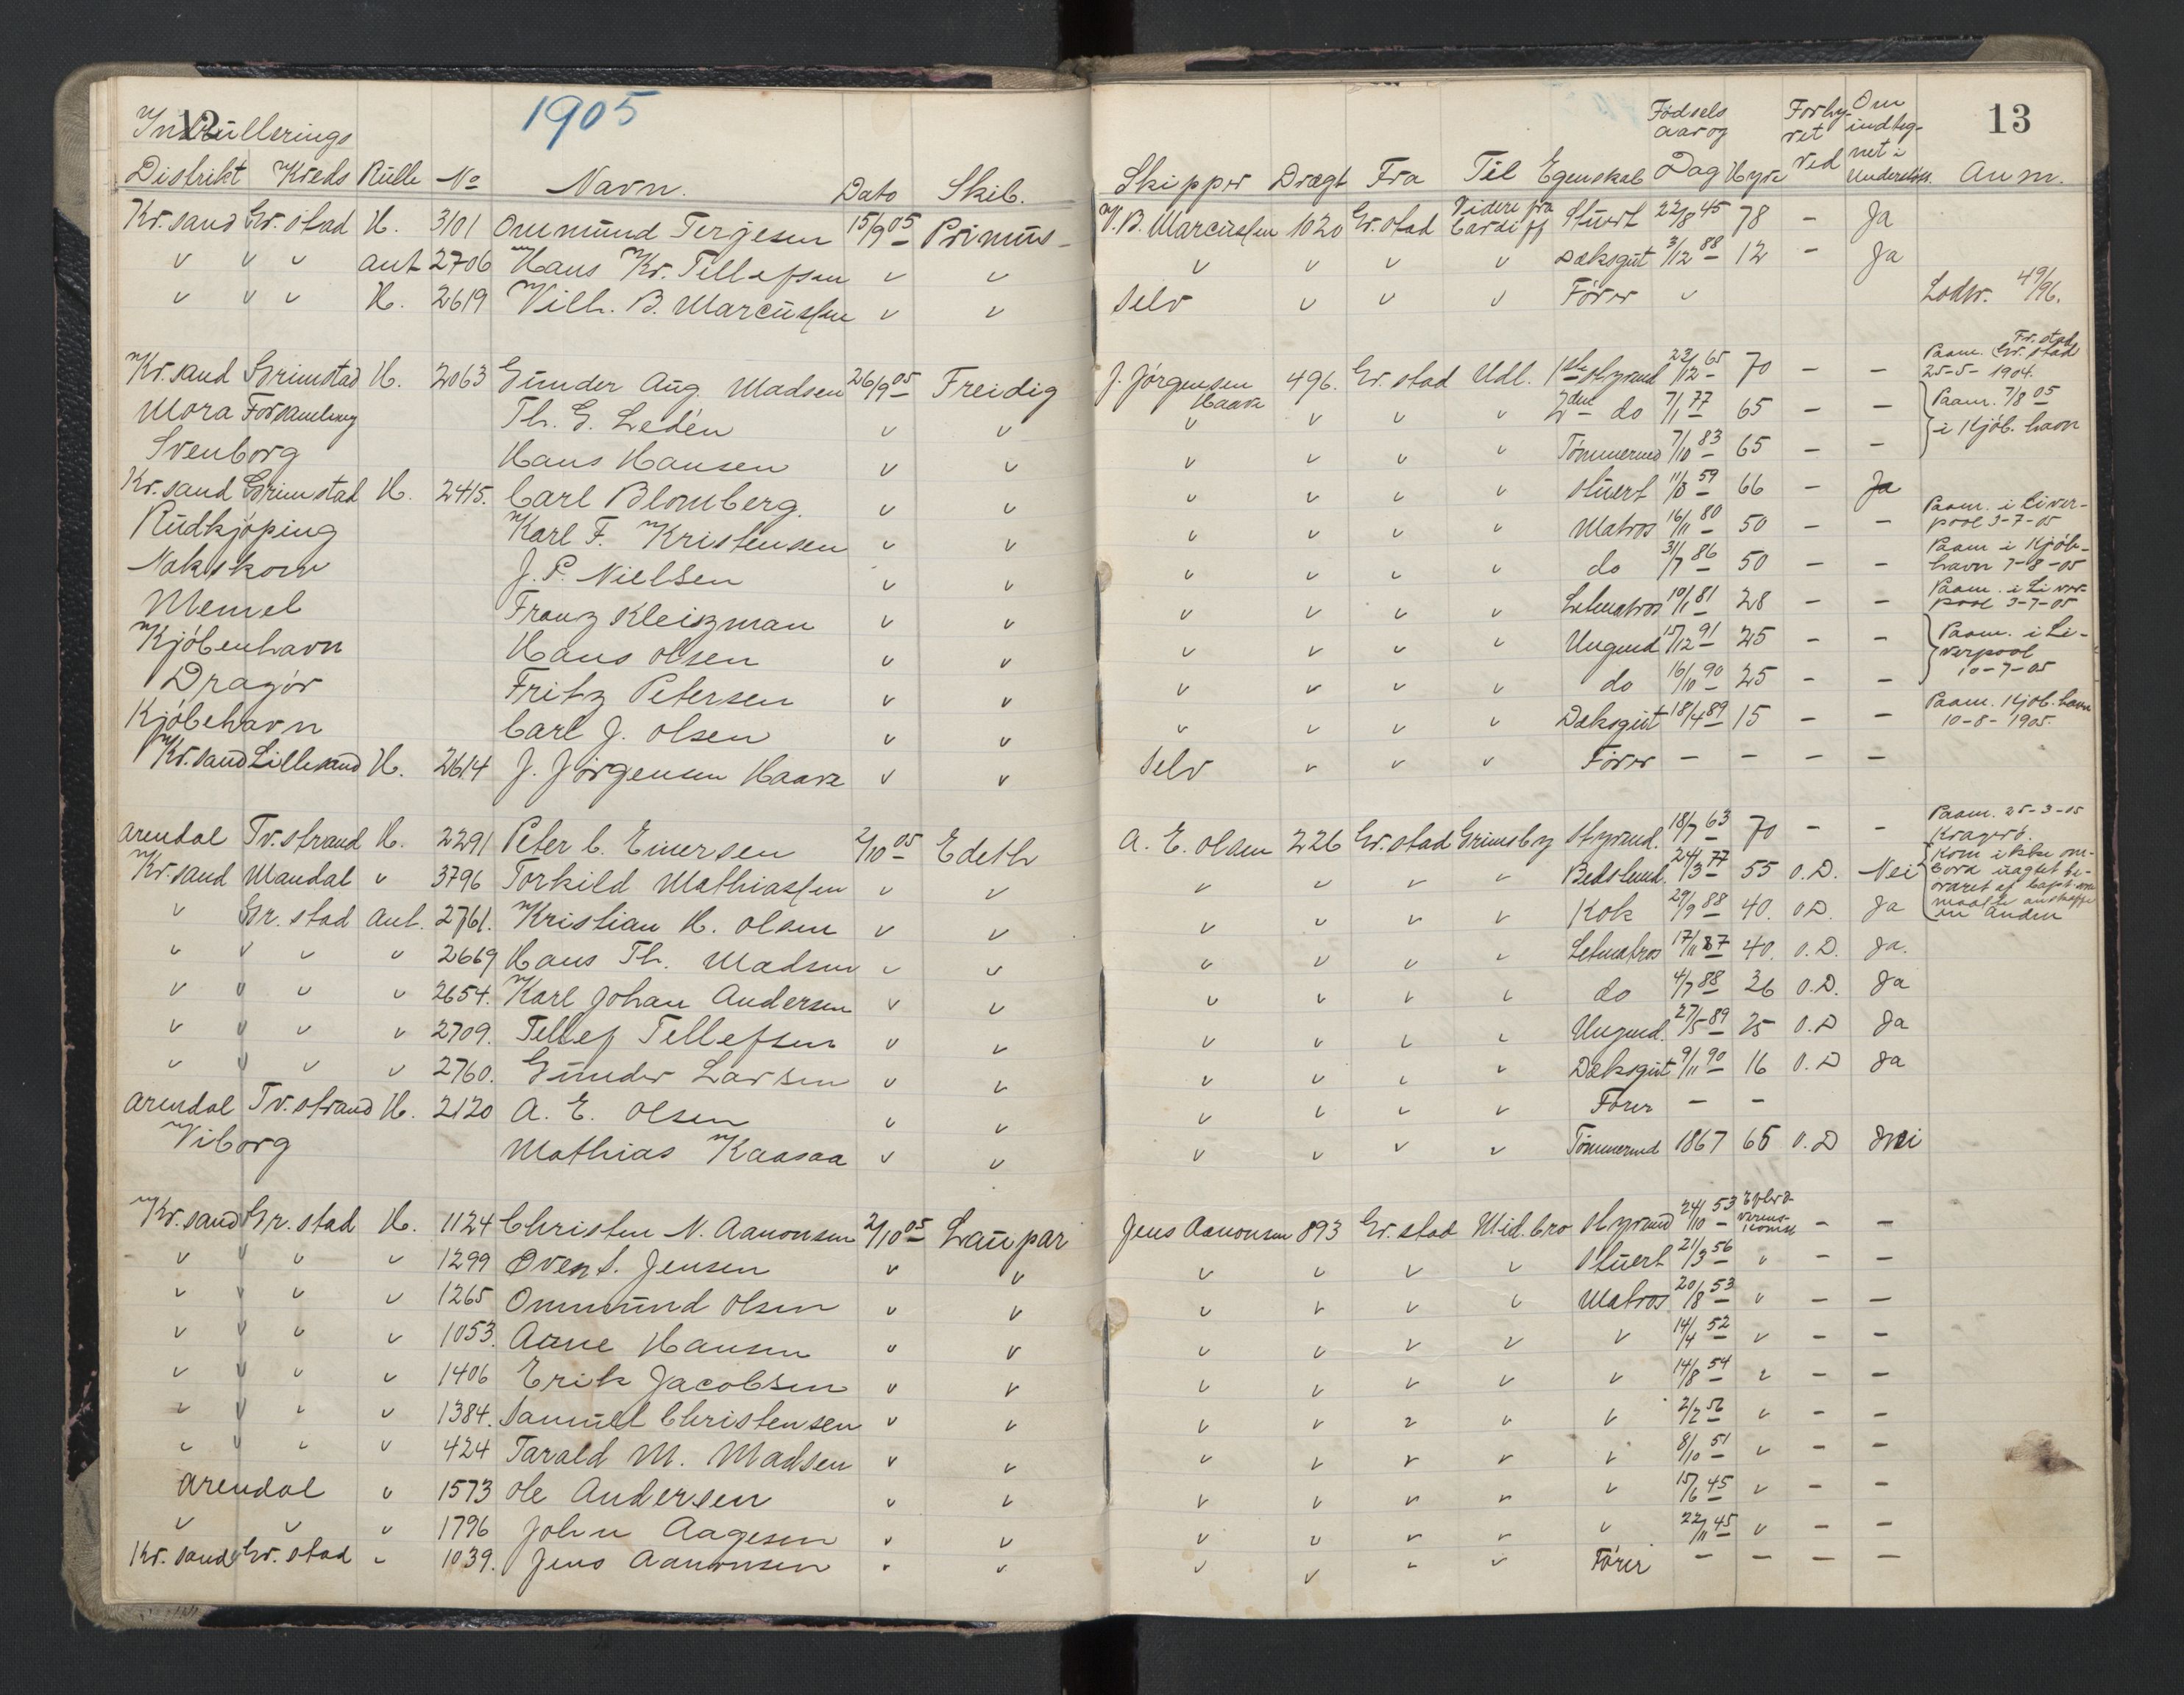 12
1905
Inrullerings
Distrikt Kreds Rulle No Navn. Dato Skib.
Kr.sand Gr.stad H. 3101 Ommund Terjesen 15/9 05 Primus
" " " ant 2706 Hans Kr. Tellefsen " "
" " " H. 2619 Vilh. B. Marcussen " "
Kr.sand Grimstad H. 2063 Gunder Aug. Madsen 26/9 05 Freidig
Mora Forsamling Th. G. Ledén " "
Svenborg Hans Hansen " "
Kr.sand Grimstad H. 2415. Carl Blomberg. " "
Rudkjöping Karl F. Kristensen " "
Nakskow J. P. Nielsen " "
Memel Franz Kleiszman " "
Kjöbenhavn Hans Olsen " "
Dragör Fritz Petersen " "
Kjöbehavn Carl J. Olsen " "
Kr.sand Lillesand H. 2614 J. Jörgensen Haave " "
Arendal Tv.strand H. 2291 Peter C. Einersen 2/10 05 Edeth
Kr.sand Mandal " 3796 Torkild Mathiassen " "
" Gr.stad Ant. 2761. Kristian H. Olsen " "
" " " " 2669 Hans Th. Madsen " "
" " " " 2654. Karl Johan Andersen " "
" " " " 2709. Tellef Tellefsen " "
" " " " 2760. Gunder Larsen " "
Arendal Tv.strand H. 2120 A. E. Olsen " "
Viborg Mathias Kaasaa " "
Kr.sand Gr.stad H. 1124 Christen N. Aanonsen 2/10 05 Laupar
" " " " 1299 Oven S. Jensen " "
" " " " 1265 Ommund Olsen " "
" " " " 1053. Aane Hansen " "
" " " " 1406 Erik Jacobsen " "
" " " " 1384. Samuel Christensen " "
" " " " 424 Tarald M. Madsen " "
Arendal " 1573 Ole Andersen " "
" " " 1796 John Aagesen " "
Kr.sand Gr.stad " 1039. Jens Aanonsen " "
13
Skipper Drægt Fra Til Egenskab Fødsels aar og Dag Hyre Forhyret ved Om indtegnet i Anm.
V. B. Marcussen 1020 Gr.stad Videre fra Cardiff Stuert 22/8 45 78 - Ja
" " " " Dæksgut 3/12 88 12 - Ja
Selv " " " Förer " Lodw. 49/96.
J. Jörgensen Haave 496. Gr.stad Udl. 1ste Styrmd 22/12 65 70 - - Paam. Fr.stad Gr.stad 25-5-1904.
" " " " 2den do 7/1 77 65 - - Paam. 7/8 05
" " " " Tömmermd 7/10 83 65 - - i Kjöb.havn
" " " " Stuert 11/8 59 66 - Ja
" " " " Matros 16/11 80 50 - - Paam. i Liverpool 3-7-05
" " " " do 31/7 86 50 - - Paam i Kjöbhavn 7-8-05
" " " " Letmatros 10/1 81 28 - - Paam. i Liverpool 3-7-05
" " " " Ungmd 15/12 91 25 - - Paam. i Liverpool
" " " " do 16/10 90 25 - - 10-7-05
" " " " Dæksgut 18/4 89 15 - - Paam. Kjöb.havn 10-8-1905.
Selv " " " Förer - - - -
A. E. Olsen 226 Gr.stad Grimsby Styrmd. 18/7 63 70 - - Paam. 25-3-05 Kragerö.
" " " " Bedstmd. 24/3 77 55 O.D. Nei Kom ikke ombord
" " " " Kok 29/9 88 40. O.D. Ja en anden
" " " " Letmatros 17/11 87 40. O.D. Ja.
" " " " do 4/7 88 36 O.D. Ja
" " " " Ungmd. 27/5 89 25 O.D Ja
" " " " Dæksgut 9/11 90 16 O.D Ja
" " " " Förer - -
" " " " Tömmermd 1867 65 O.D Nei
Jens Aanonsen 893 Gr.stad Mid.bro Styrmd 24/10 53 - -
" " " " Stuert 21/3 56 " - -
" " " " Matros 20/8 53 " - -
" " " " " 14/4 52 " - -
" " " " " 14/8 54 " - -
" " " " " 2/2 56 " - -
" " " " " 8/10 51 " - -
" " " " " 15/6 45 " - -
" " " " " 22/11 45 " - -
" " " " Förer - - - -